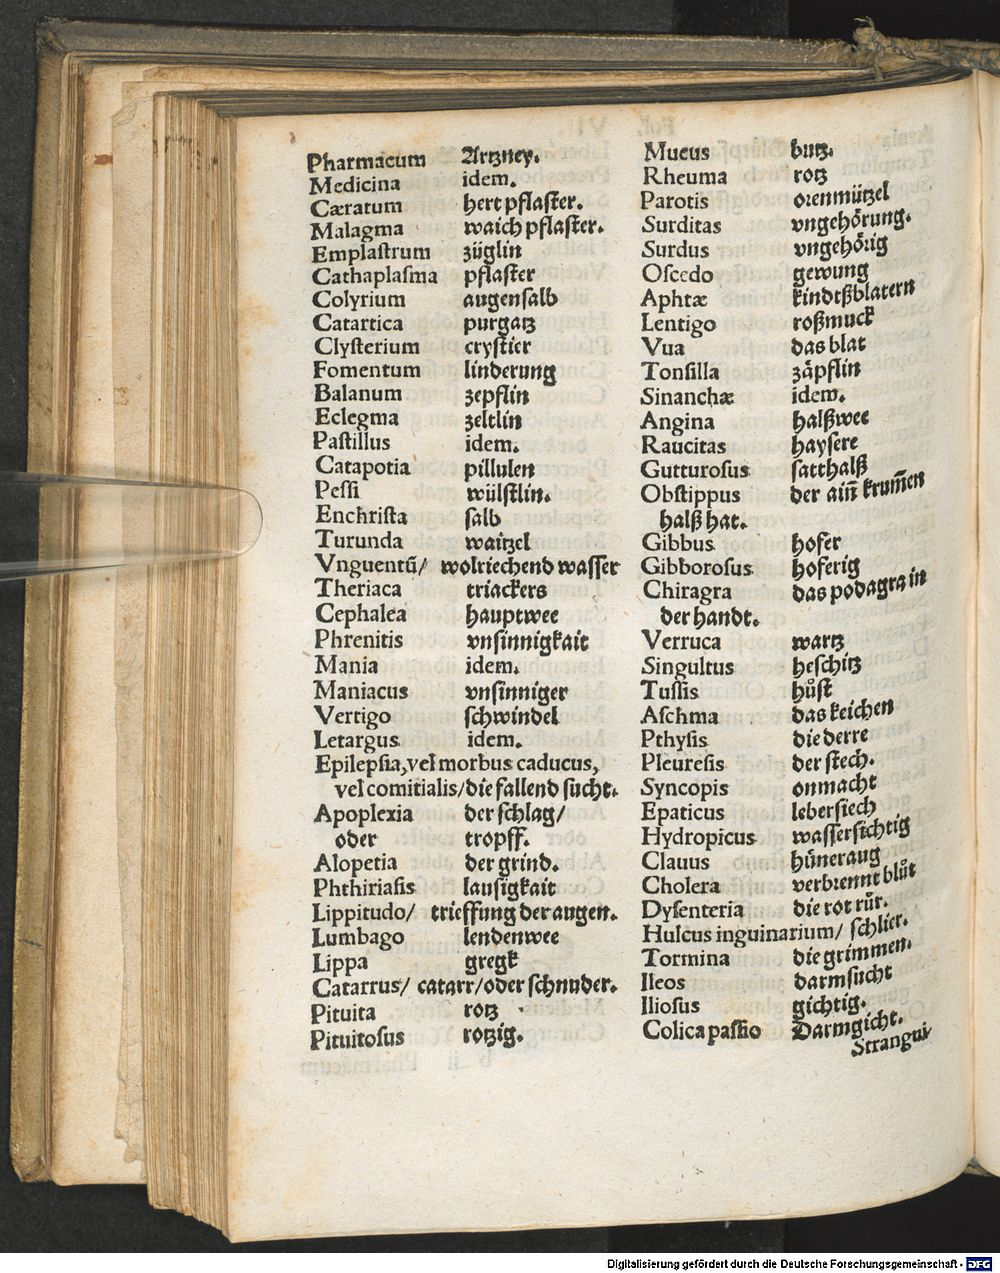 Pharmacum Artzney.
Medicina idem.
Cæratum hert pflaster.
Malagma waich pflaster.
Emplastrum züglin
Cathaplasma pflaster
Colyrium augensalb
Catartica purgatz
Clysterium crystier
Fomentum linderung
Balanum zepflin
Eclegma zeltlin
Pastillus idem.
Catapotia pillulen
Pessi wülstlin.
Enchrista salb
Turunda waitzel
Vnguentū/ wolriechend wasser
Theriaca triackers
Cephalea hauptwee
Phrenitis vnsinnigkait
Mania idem.
Maniacus vnsinniger
Vertigo schwindel
Letargus idem.
Epilepsia, vel morbus caducus,
vel comitialis/die fallend sucht.
Apoplexia der schlag/
oder tropff.
Alopetia der grind.
Phthiriasis lausigkait
Lippitudo/ trieffung der augen.
Lumbago lendenwee
Lippa gregk
Catarrus/ catarr/oder schnuder.
Pituita rotz
Pituitosus rotzig.
Mucus butz.
Rheuma rotz
Parotis orenmützel
Surditas vngehörung.
Surdus vngehörig
Oscedo gewung
Aphtæ kindtßblatern
Lentigo roßmuck
Vua das blat
Tonsilla zäpflin
Sinanchæ idem.
Angina halßwee
Raucitas haysere
Gutturosus satthalß
Obstippus der ain̄ krum̄en
halß hat.
Gibbus hofer
Gibborosus hoferig
Chiragra das podagra in
der handt.
Verruca wartz
Singultus heschitz
Tussis hůst
Aschma das keichen
Pthysis die derre
Pleuresis der stech.
Syncopis onmacht
Epaticus lebersiech
Hydropicus wassersichtig
Clauus hüneraug
Cholera verbrennt blůt
Dysenteria die rot růr.
Hulcus inguinarium/ schlier.
Tormina die grimmen.
Ileos darmsucht
Iliosus gichtig.
Colica passio Darmgicht.
Strangui
Digitalisierung gefördert durch die Deutsche Forschungsgemeinschaft - DFG